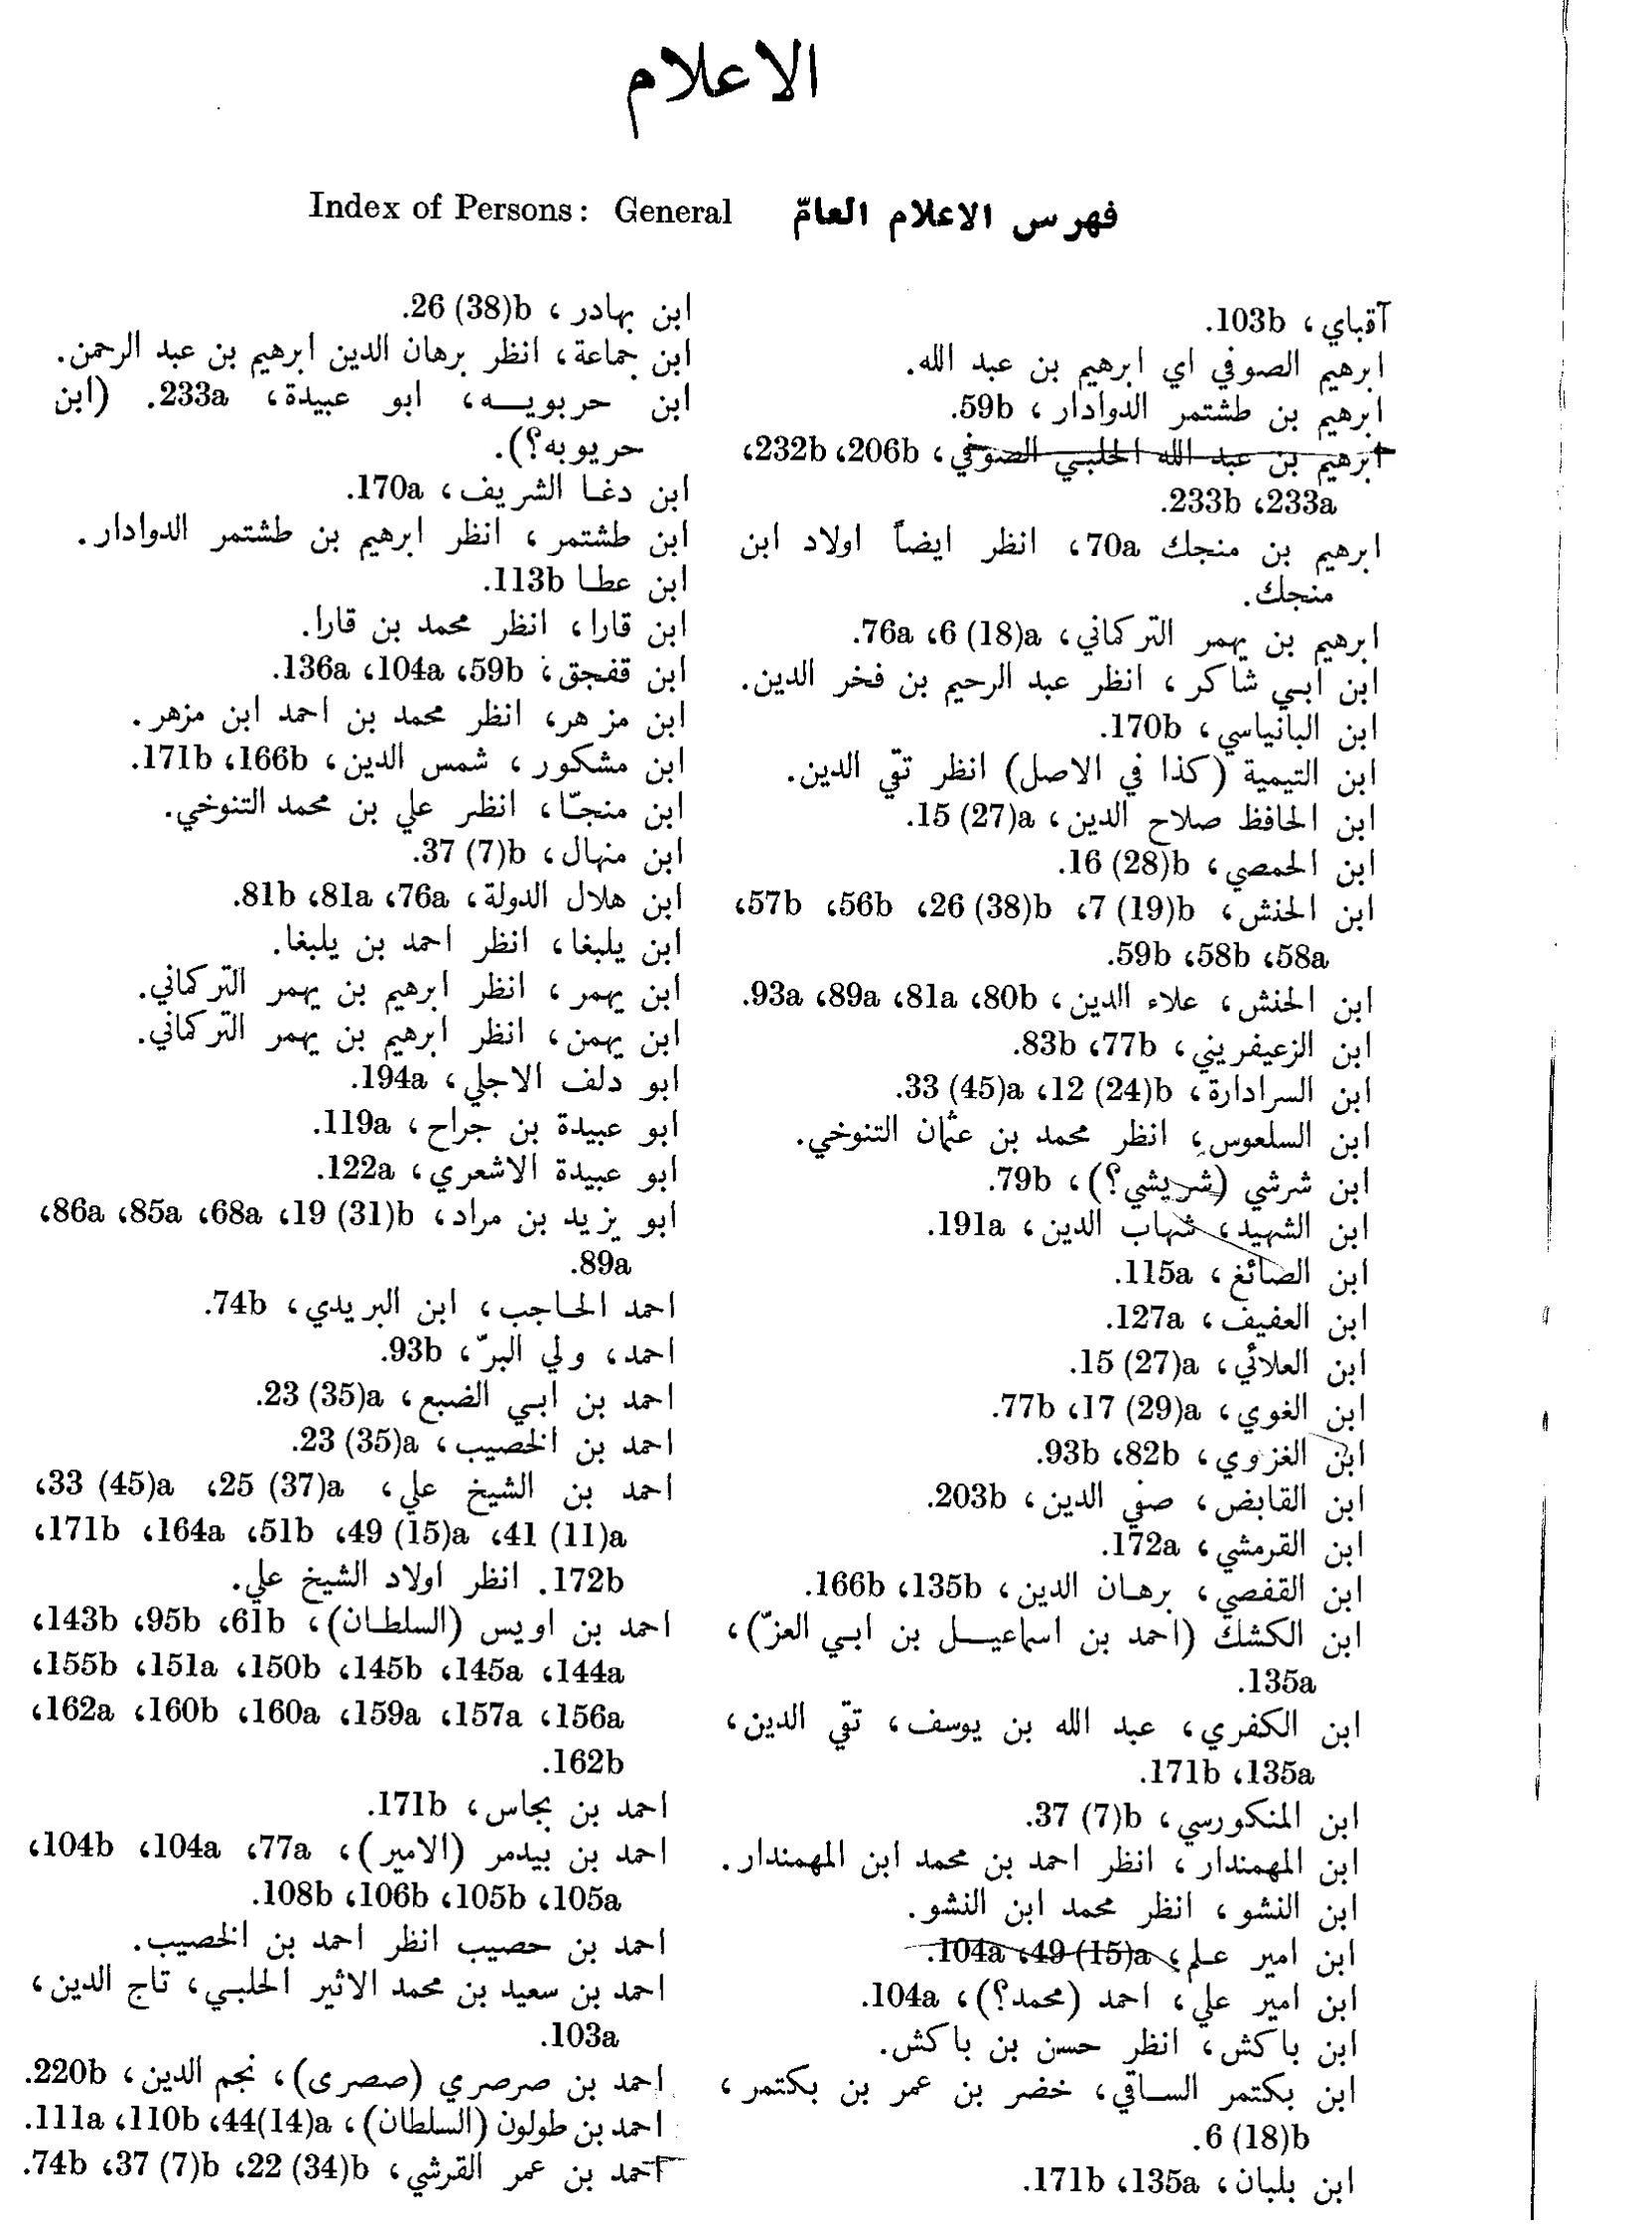 الاعلام
فهرس الاعلام العامّ Index of Persons: General
آقباي، 103b.
ابرهيم الصوفي اي ابرهيم بن عبد الله.
ابرهيم بن طشتمر الدوادار، 59b.
ابرهيم بن عبد الله الحلبي الصوفي، 206b، 232b،
233a، 233b.
ابرهيم بن منجك 70a، انظر ايضاً اولاد ابن
منجك.
ابرهيم بن يهمر التركماني، 6 (18)a، 76a.
ابن ابي شاكر، انظر عبد الرحيم بن فخر الدين.
ابن البانياسي، 170b.
ابن التيمية (كذا في الاصل) انظر تقي الدين.
ابن الحافظ صلاح الدين، 15 (27)a.
ابن الحمصي، 16 (28)b.
ابن الحنش، 7 (19)b، 26 (38)b، 56b، 57b،
58a، 58b، 59b.
ابن الحنش، علاء الدين، 80b، 81a، 89a، 93a.
ابن الزعيفريني، 77b، 83b.
ابن السرادارة، 12 (24)b، 33 (45)a.
ابن السلعوس، انظر محمد بن عثمان التنوخي.
ابن شرشي (شريشي؟)، 79b.
ابن الشهيد، شهاب الدين، 191a.
ابن الصائغ، 115a.
ابن العفيف، 127a.
ابن العلائي، 15 (27)a.
ابن الغوي، 17 (29)a، 77b.
ابن الغزوي، 82b، 93b.
ابن القابض، صفي الدين، 203b.
ابن القرمشي، 172a.
ابن القفصي، برهان الدين، 135b، 166b.
ابن الكشك (احمد بن اسماعيل بن ابي العزّ)،
135a.
ابن الكفري، عبد الله بن يوسف، تقي الدين،
135a، 171b.
ابن المنكورسي، 37 (7)b.
ابن المهمندار، انظر احمد بن محمد ابن المهمندار.
ابن النشو، انظر محمد ابن النشو.
ابن امير علم، 49 (15)a، 104a.
ابن امير علي، احمد (محمد؟)، 104a.
ابن باكش، انظر حسن بن باكش.
ابن بكتمر الساقي، خضر بن عمر بن بكتمر،
6 (18)b.
ابن بلبان، 135a، 171b.
ابن بهادر، 26 (38)b.
ابن جماعة، انظر برهان الدين ابرهيم بن عبد الرحمن.
ابن حربويه، ابو عبيدة، 233a. (ابن
حريوبه؟).
ابن دغا الشريف، 170a.
ابن طشتمر، انظر ابرهيم بن طشتمر الدوادار.
ابن عطا 113b.
ابن قارا، انظر محمد بن قارا.
ابن قفجق، 59b، 104a، 136a.
ابن مزهر، انظر محمد بن احمد ابن مزهر.
ابن مشكور، شمس الدين، 166b، 171b.
ابن منجّا، انظر علي بن محمد التنوخي.
ابن منهال، 37 (7)b.
ابن هلال الدولة، 76a، 81a، 81b.
ابن يلبغا، انظر احمد بن يلبغا.
ابن يهمر، انظر ابرهيم بن يهمر التركماني.
ابن يهمن، انظر ابرهيم بن يهمر التركماني.
ابو دلف الاجلي، 194a.
ابو عبيدة بن جراح، 119a.
ابو عبيدة الاشعري، 122a.
ابو يزيد بن مراد، 19 (31)b، 68a، 85a، 86a،
89a.
احمد الحاجب، ابن البريدي، 74b.
احمد، ولي البرّ، 93b.
احمد بن ابي الضبع، 23 (35)a.
احمد بن الخصيب، 23 (35)a.
احمد بن الشيخ علي، 25 (37)a، 33 (45)a،
41 (11)a، 49 (15)a، 51b، 164a، 171b،
172b. انظر اولاد الشيخ علي.
احمد بن اويس (السلطان)، 61b، 95b، 143b،
144a، 145a، 145b، 150b، 151a، 155b،
156a، 157a، 159a، 160a، 160b، 162a،
162b.
احمد بن بجاس، 171b.
احمد بن بيدمر (الامير)، 77a، 104a، 104b،
105a، 105b، 106b، 108b.
احمد بن حصيب انظر احمد بن الخصيب.
احمد بن سعيد بن محمد الاثير الحلبي، تاج الدين،
103a.
احمد بن صرصري (صصرى)، نجم الدين، 220b.
احمد بن طولون (السلطان)، 44(14)a، 110b، 111a.
احمد بن عمر القرشي، 22 (34)b، 37 (7)b، 74b.